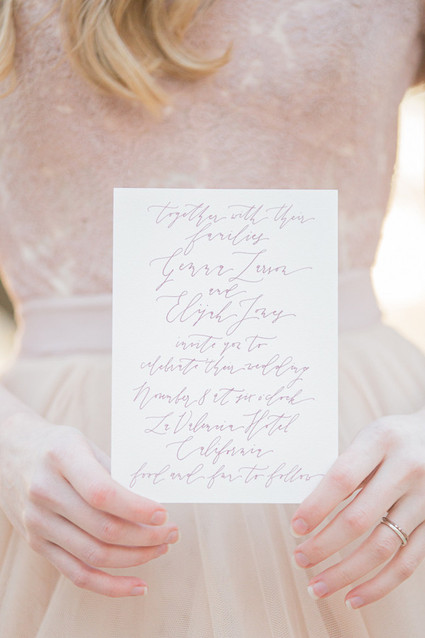 together with their
families
Gemma Larson
and
Elijah Jones
invite you to
celebrate their wedding
November 8 at six o'clock
La Valencia Hotel
California
food and fun to follow